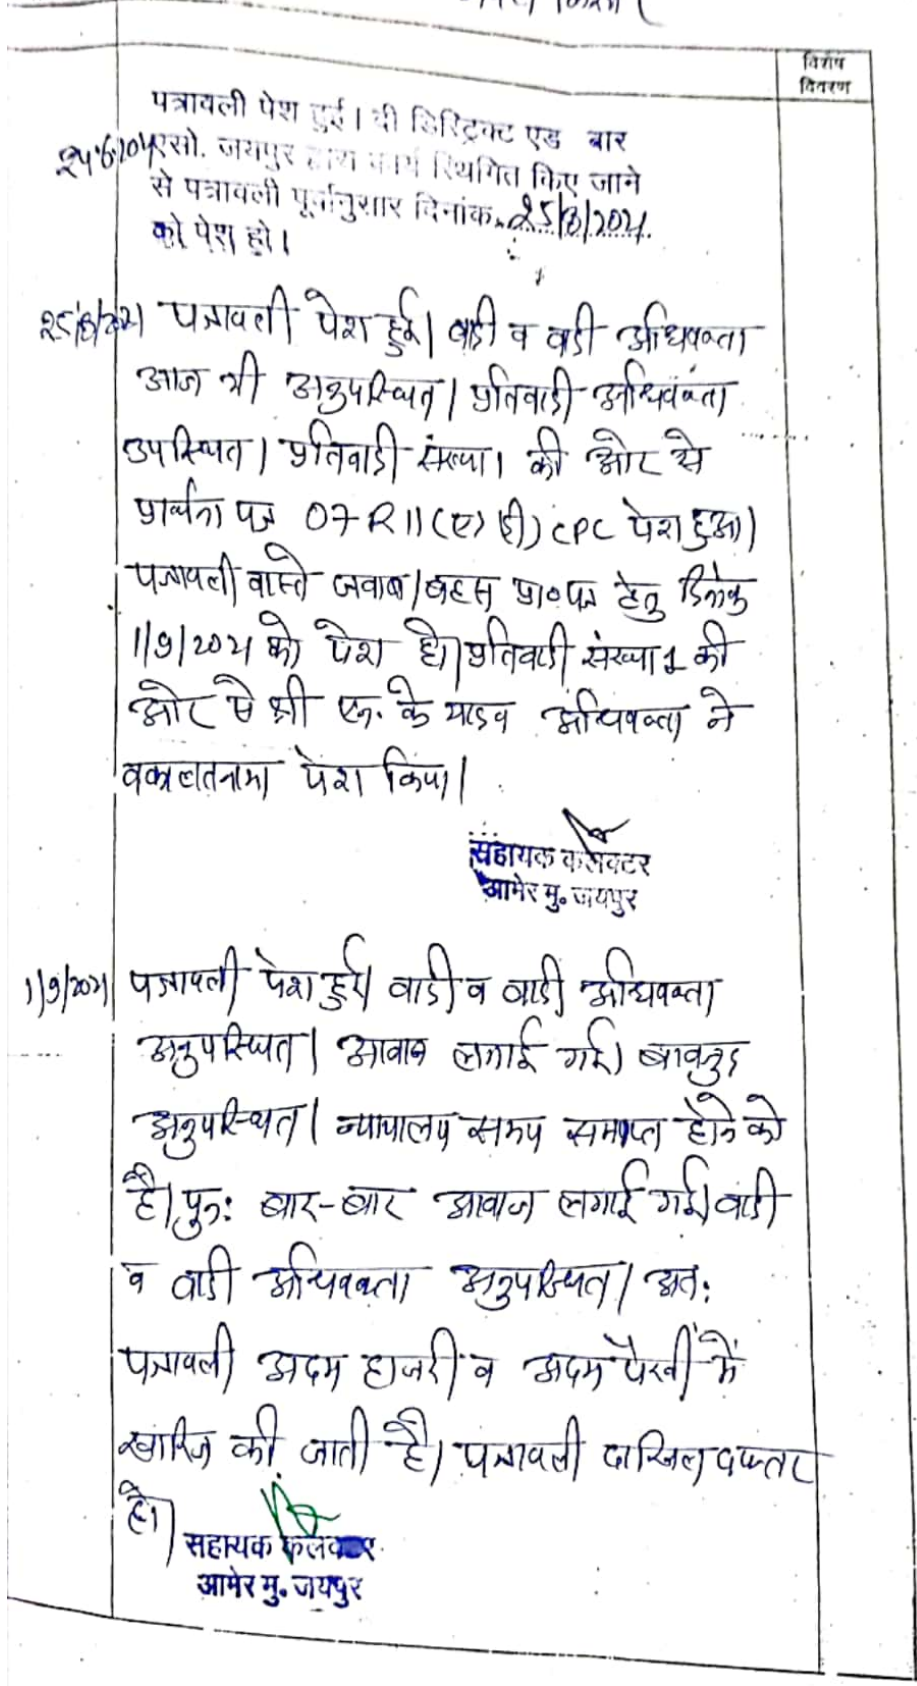 विशेष
विवरण
पत्रावली पेश हुई। दी डिस्ट्रिक्ट एड बार
एसो. जयपुर द्वारा कार्य स्थगित किए जाने
से पत्रावली पूर्वानुसार दिनांक 25/8/2021
को पेश हो।
25/8/2021 पत्रावली पेश हुई। वादी व वादी अधिवक्ता
आज भी अनुपस्थित। प्रतिवादी अधिवक्ता
उपस्थित। प्रतिवादी संख्या 1 की ओर से
प्रार्थना पत्र 07 R 11 (ए) (डी) CPC पेश हुआ।
पत्रावली वास्ते जवाब/बहस प्रा०पत्र हेतु दिनांक
1/9/2021 को पेश हो। प्रतिवादी संख्या 1 की
ओर से श्री एन. के यादव अधिवक्ता ने
वकालतनामा पेश किया।
सहायक कलेक्टर
आमेर मु. जयपुर
1/9/2021 पत्रावली पेश हुई। वादी व वादी अधिवक्ता
अनुपस्थित। आवाज लगाई गई। बावजुद
अनुपस्थित। न्यायालय समय समाप्त होने को
है। पुन: बार-बार आवाज लगाई गई। वादी
व वादी अधिवक्ता अनुपस्थित। अत:
पत्रावली अदम हाजरी व अदम पैरवी में
खारिज की जाती है। पत्रावली दाखिल दफ्तर
हो।
सहायक कलेक्टर
आमेर मु. जयपुर